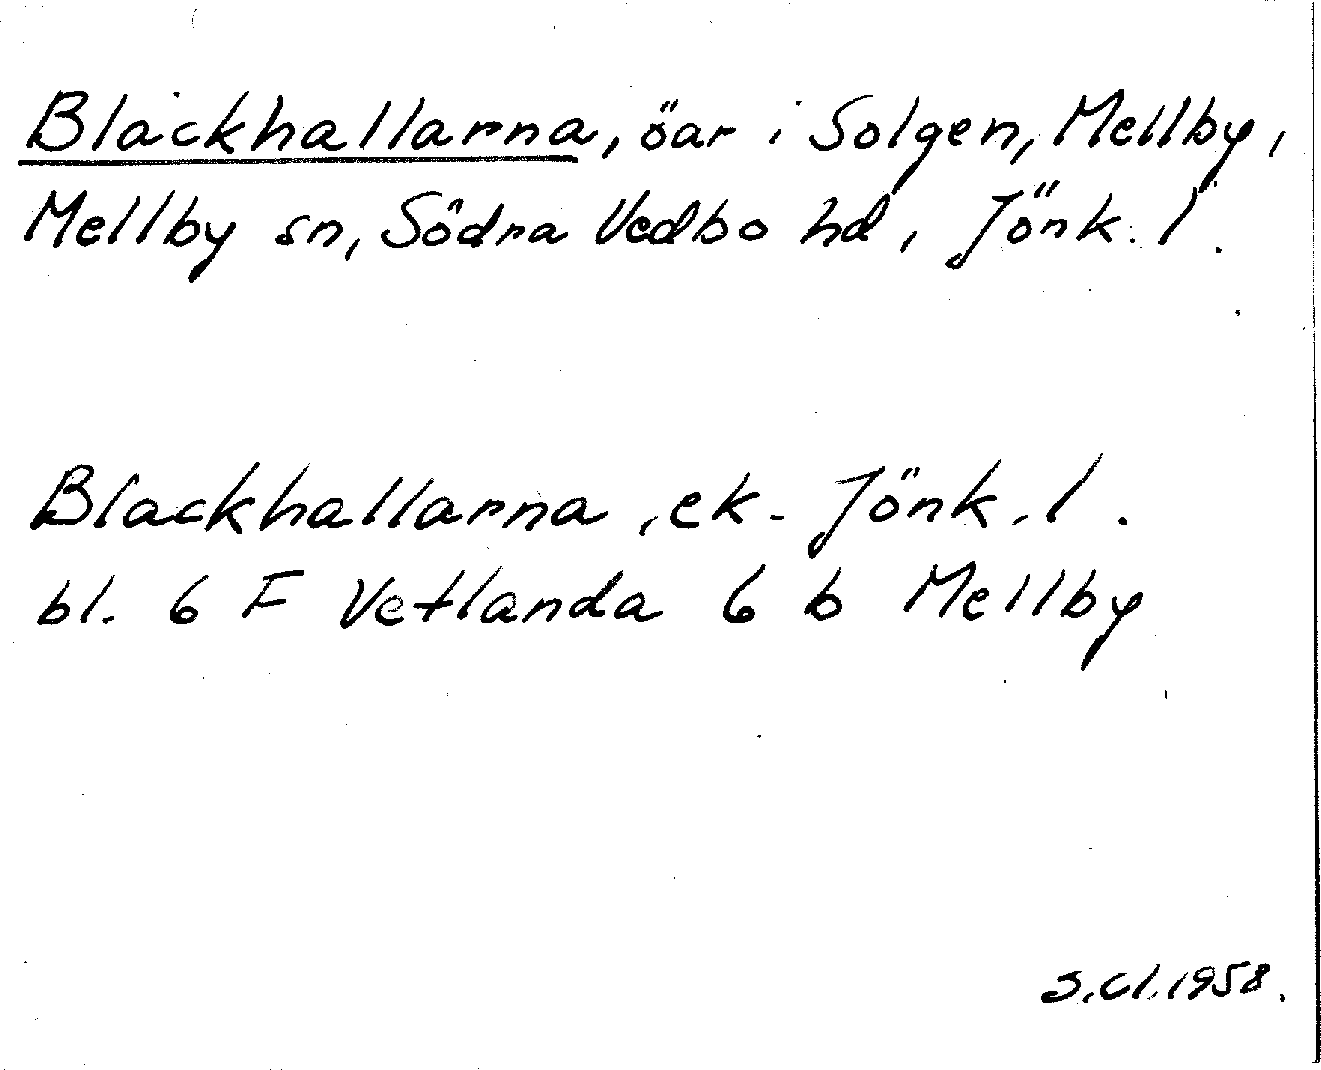 Blackhallarna, öar i Solgen, Mellby,
Mellby sn, Södra Vedbo hd, Jönk. l.
Blackhallarna, ek. Jönk. l.
bl. 6 F Vetlanda 6 b Mellby
S.Cl. 1958.